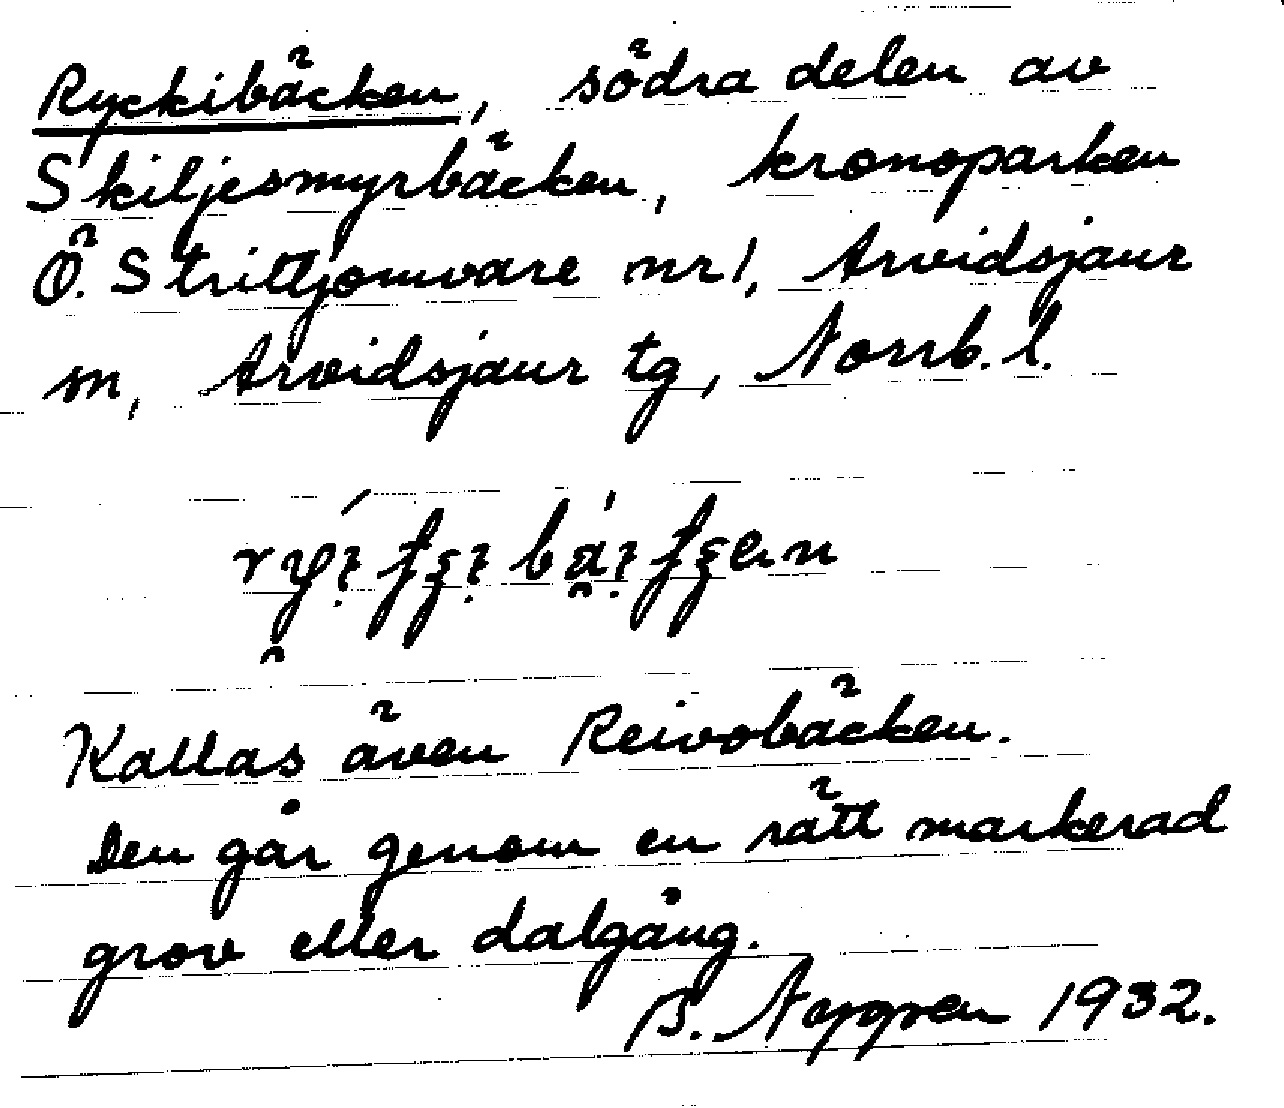 Ryckibäcken, södra delen av
Skiljesmyrbäcken, kronoparken
Ö. Strittjomvare nr 1, Arvidsjaur
sn, Arvidsjaur tg, Norrb. l.
Kallas även Reivobäcken.
Den går genom en rätt markerad
grov eller dalgång.
B. 1932.